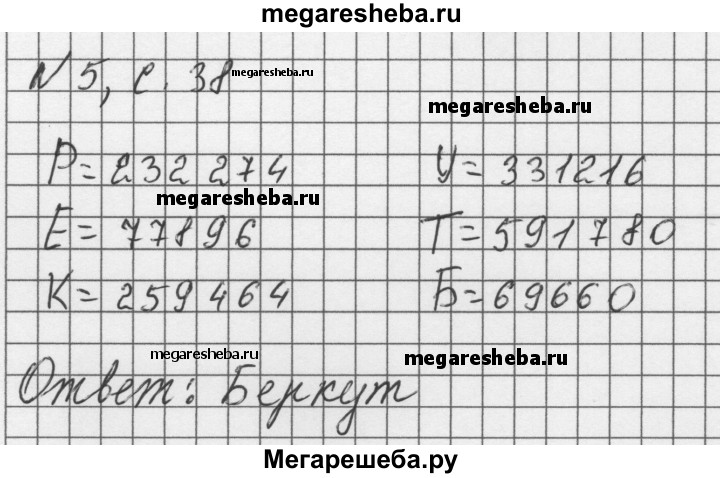 megaresheba.ru
N 5, с. 38 megaresheba.ru
megaresheba.ru
Р = 232 274 У = 331216
megaresheba.ru
Е = 77896 Т = 591780
К = 259464 Б = 69660
megaresheba.ru megaresheba.ru
Ответ: Беркут
Мегарешеба.ру